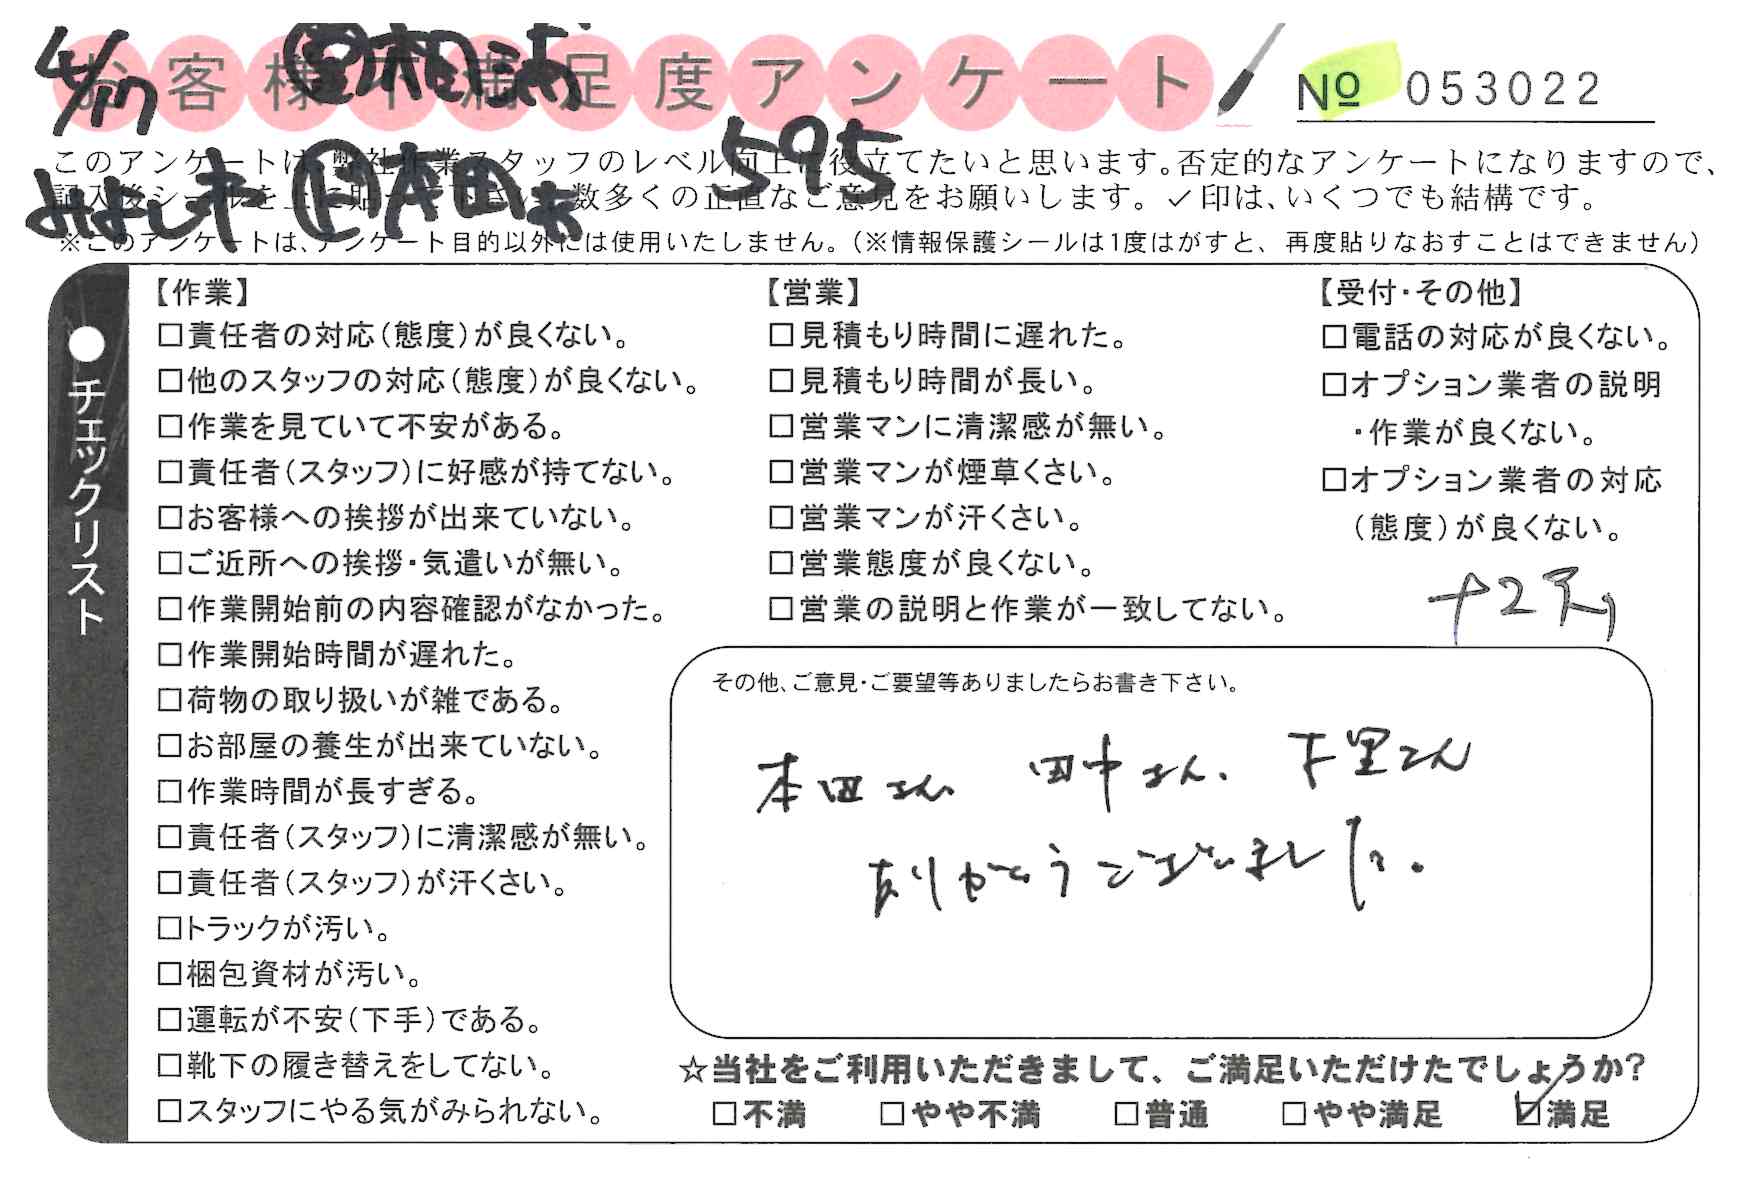 4/17
お客様不満足度アンケート
№ 053022
595
このアンケートは、弊社作業スタッフのレベル向上に役立てたいと思います。否定的なアンケートになりますので、
記入後シールを上に貼って下さい。数多くの正直なご意見をお願いします。✓印は、いくつでも結構です。
※このアンケートは、アンケート目的以外には使用いたしません。(※情報保護シールは1度はがすと、再度貼りなおすことはできません)
●チェックリスト
【作業】
□責任者の対応(態度)が良くない。
□他のスタッフの対応(態度)が良くない。
□作業を見ていて不安がある。
□責任者(スタッフ)に好感が持てない。
□お客様への挨拶が出来ていない。
□ご近所への挨拶・気遣いが無い。
□作業開始前の内容確認がなかった。
□作業開始時間が遅れた。
□荷物の取り扱いが雑である。
□お部屋の養生が出来ていない。
□作業時間が長すぎる。
□責任者(スタッフ)に清潔感が無い。
□責任者(スタッフ)が汗くさい。
□トラックが汚い。
□梱包資材が汚い。
□運転が不安(下手)である。
□靴下の履き替えをしてない。
□スタッフにやる気がみられない。
【営業】
□見積もり時間に遅れた。
□見積もり時間が長い。
□営業マンに清潔感が無い。
□営業マンが煙草くさい。
□営業マンが汗くさい。
□営業態度が良くない。
□営業の説明と作業が一致してない。
【受付・その他】
□電話の対応が良くない。
□オプション業者の説明
・作業が良くない。
□オプション業者の対応
(態度)が良くない。
その他、ご意見・ご要望等ありましたらお書き下さい。
本田さん 田中さん、下里さん
ありがとうございました。
☆当社をご利用いただきまして、ご満足いただけたでしょうか?
□不満 □やや不満 □普通 □やや満足 ☑満足